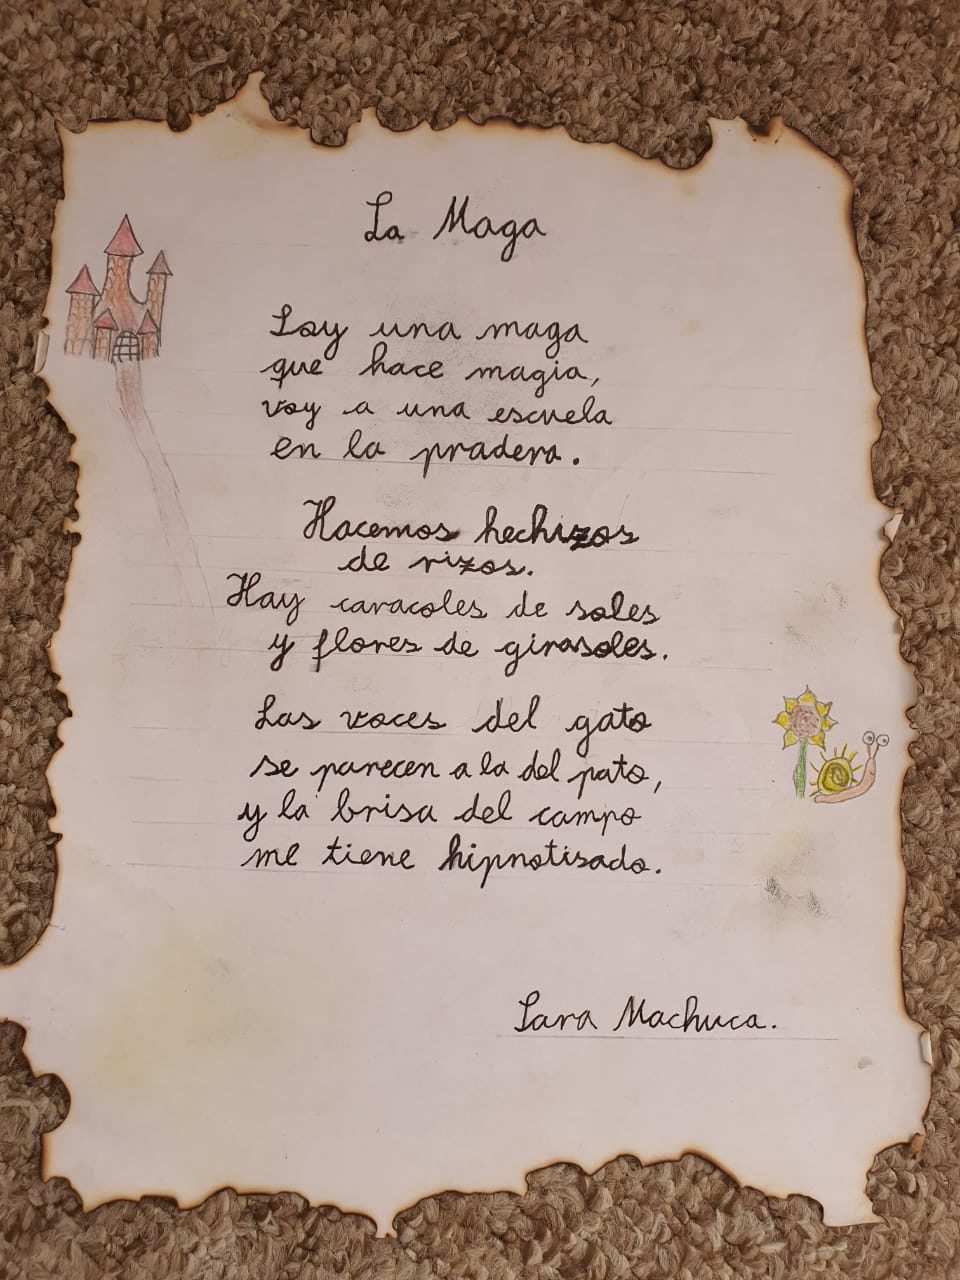 La Maga
Soy una maga
que hace magia,
voy a una escuela
en la pradera.
Hacemos hechizos
de rizos.
Hay caracoles de soles
y flores de girasoles.
Las voces del gato
se parecen a la del pato,
y la brisa del campo
me tiene hipnotisado.
Sara Machuca.